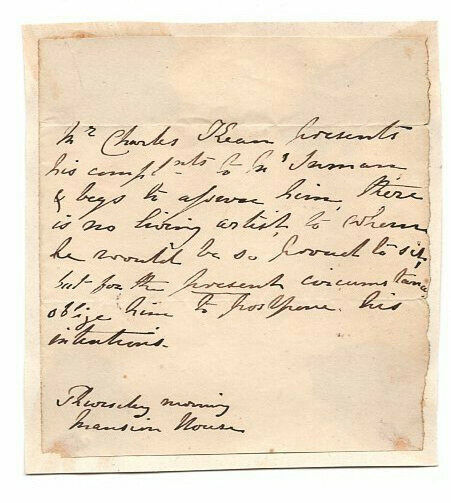 Mr Charles Kean presents
his complnts to Mr Inman,
& begs to assure him, there
is no living artist, to whom
he would be so proud to sit,
but for the present circumstances
oblige him to postpone his
intentions.
Thursday morning
Mansion House